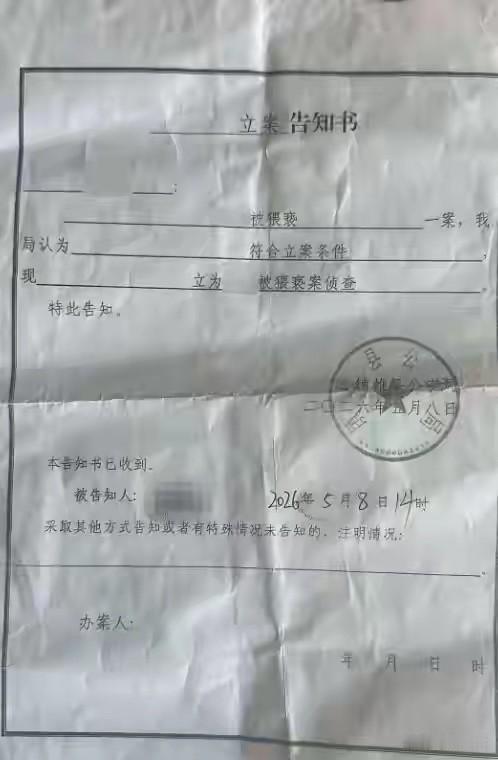 立案 告知书
:
被猥亵 一案，我
局认为 符合立案条件 ，
现 立为 被猥亵案侦查 。
特此告知。
县公安局
二〇二六年五月八日
本告知书已收到。
被告知人: 2026年5月8日14时
采取其他方式告知或者有特殊情况未告知的，注明情况:
办案人:
年 月 日 时